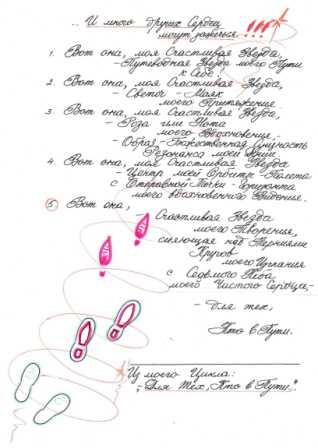 .. И много других Сердец
могут зажечься...!!!
1. Вот она, моя Счастливая Звезда
- Путеводная Звезда моего Пути
к Себе.
2. Вот она, моя Счастливая Звезда,
- Светоч - Маяк
моего Притяжения
3. Вот она, моя Счастливая Звезда,
- Роза или Нота
моего Вдохновения -
- Образ - Божественная Сущность
Резонанса моей
4. Вот она, моя Счастливая Звезда
- Центр моей Орбиты - Полёта
с Отправной Точки - Горизонта
моего вдохновенного Видения.
5 Вот она,
- Счастливая Звезда
моего Творения,
сияющая над Терниями
Кругов
моего Изгнания
с Седьмого Неба
моего Чистого Сердца -
- Для тех,
Кто в Пути.
Из моего Цикла:
"Для Тех, Кто в Пути".